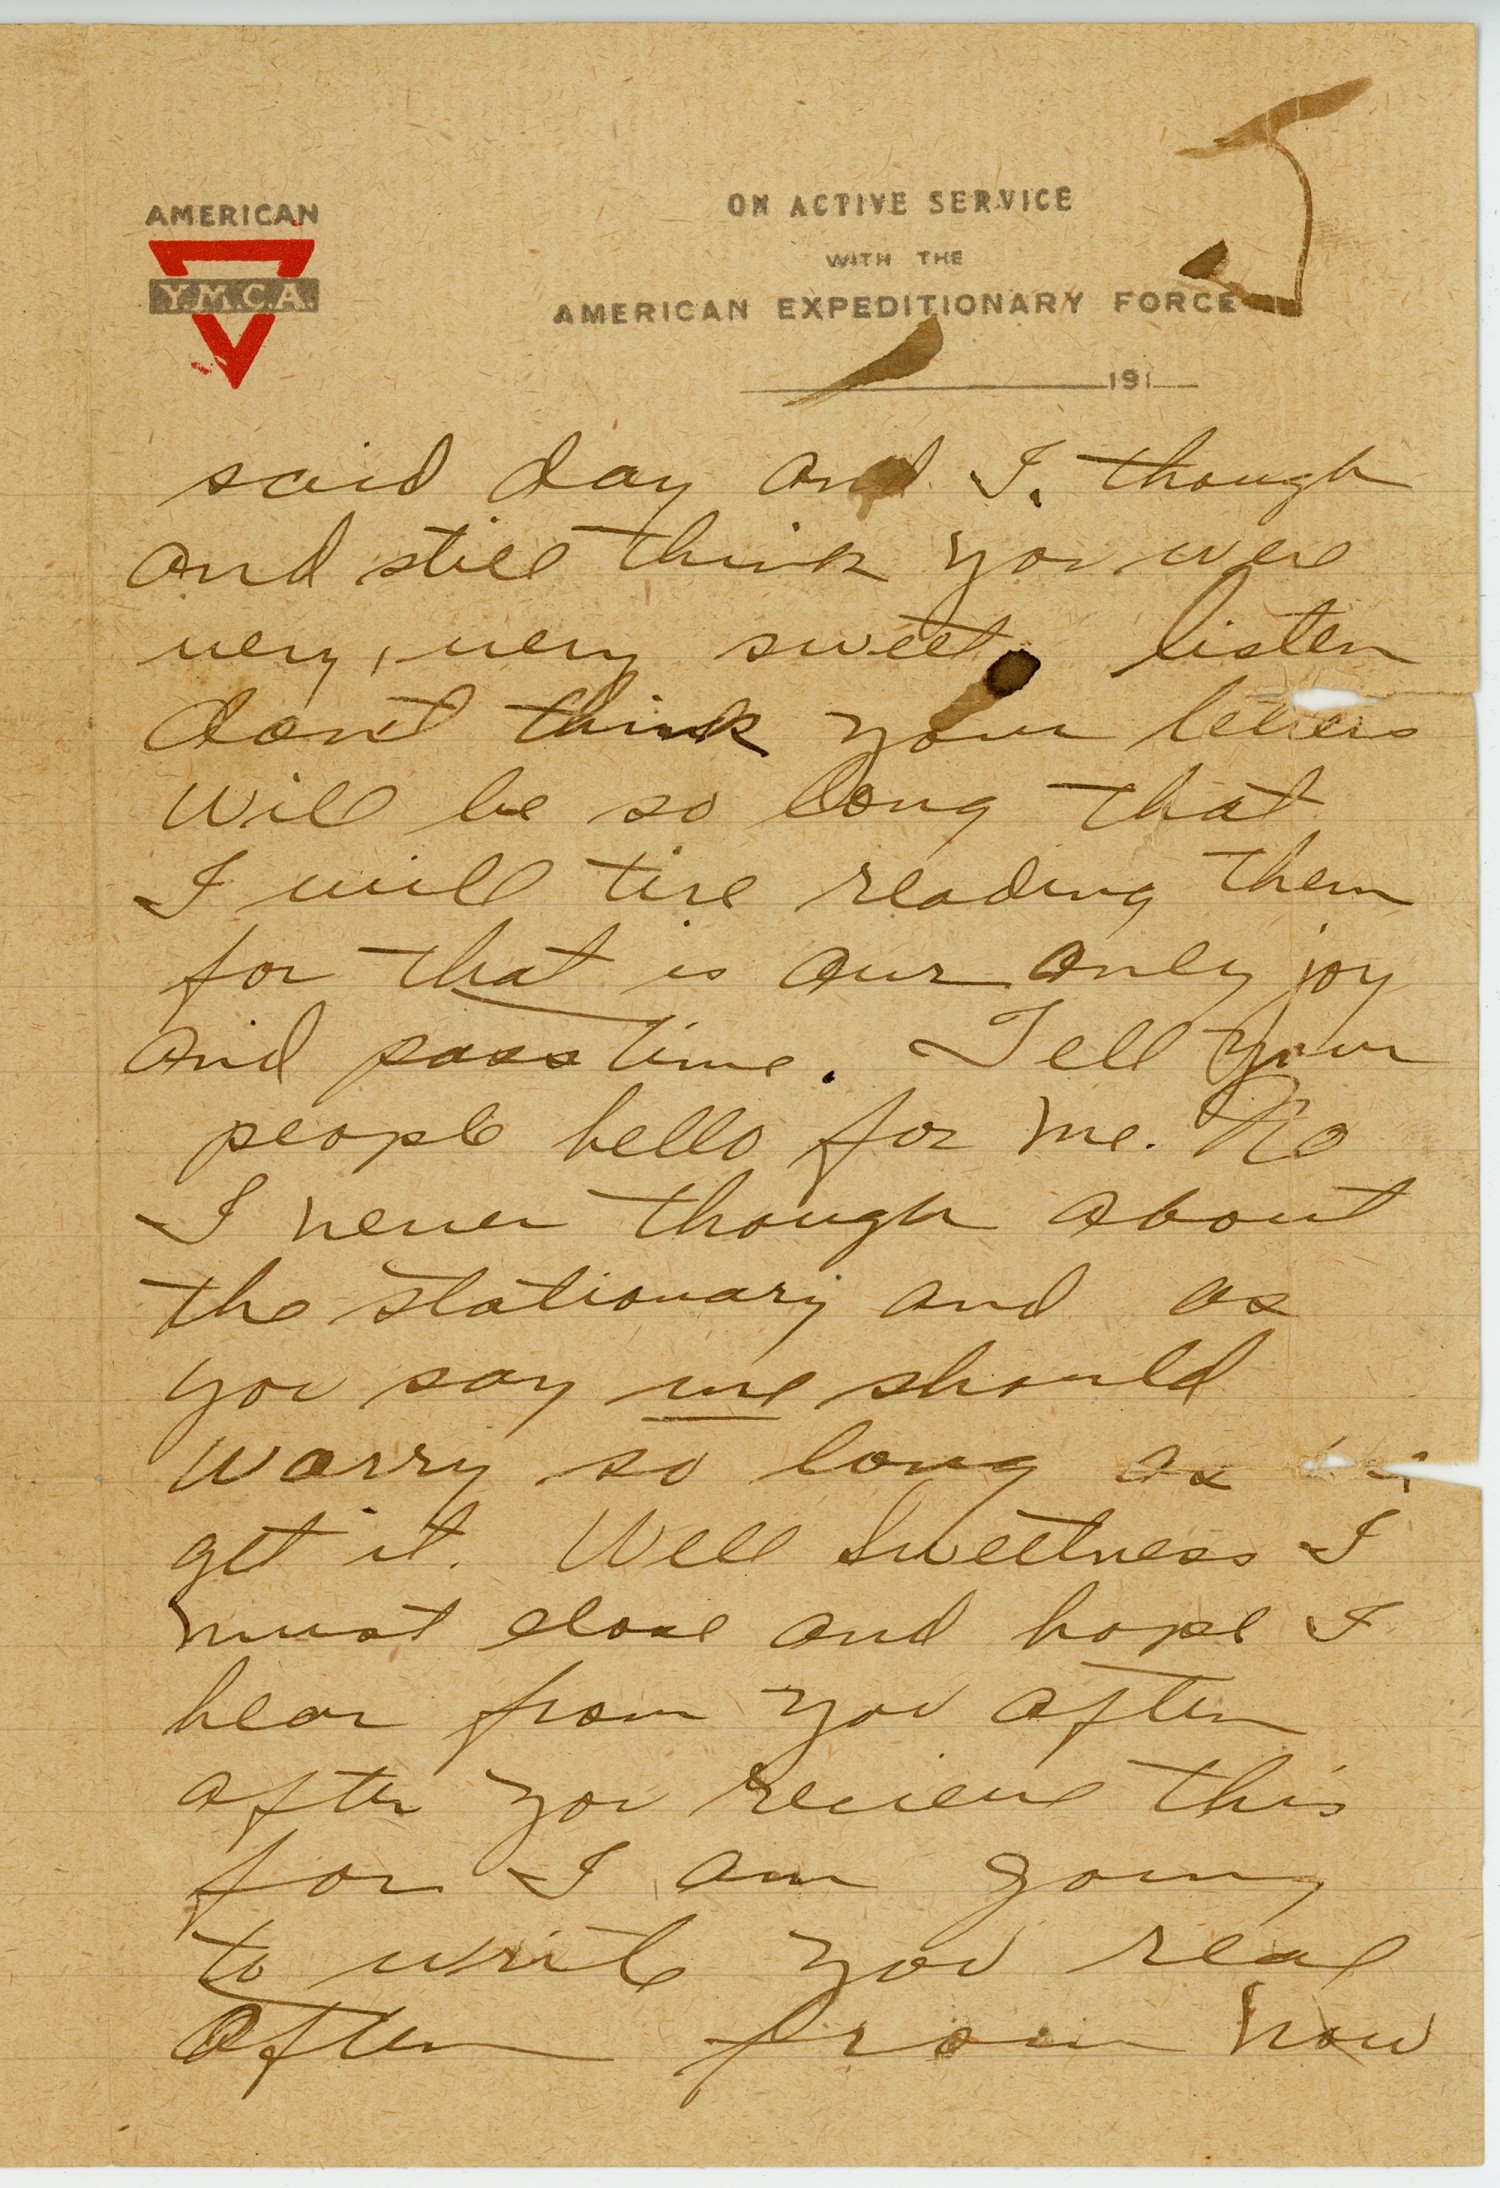 AMERICAN
Y.M.C.A.
ON ACTIVE SERVICE
WITH THE
AMERICAN EXPEDITIONARY FORCE
191
said day and I. though
and still think you were
very, very sweet. listen
don't think your letters
will be so long that
I will tire reading them
for that is our only joy
and pass time. Tell your
people hello for me. No
I never though about
the stationary and as
you say we should
worry so long as
get it. Well Sweetness I
must close and hope I
hear from you often
after you recieve this
for I am going
to write you real
often from now